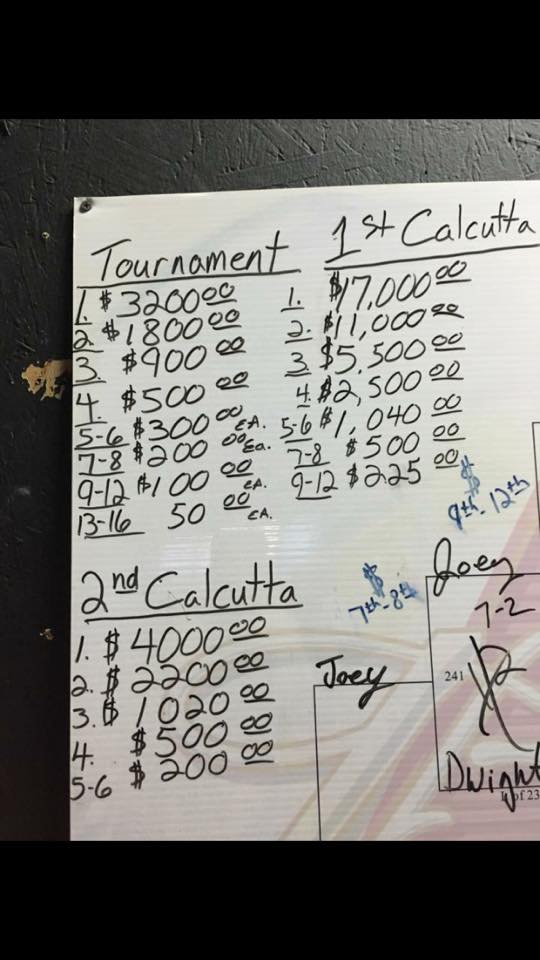 Tournament
1. $3200.00
2. $1800.00
3. $900.00
4. $500.00
5-6 $300.00 EA.
7-8 $200.00 Ea.
9-12 $100.00 EA.
13-16 50.00 EA.
1st Calcutta
1. $17,000.00
2. $11,000.00
3. $5,500.00
4. $2,500.00
5-6 $1,040.00
7-8 $500.00
9-12 $225.00
$
9th-12th
$
7th-8th
2nd Calcutta
1. $4000.00
2. $2200.00
3. $1020.00
4. $500.00
5-6 $200.00
Joey
7-2
241
Joey
Dwight
of 23